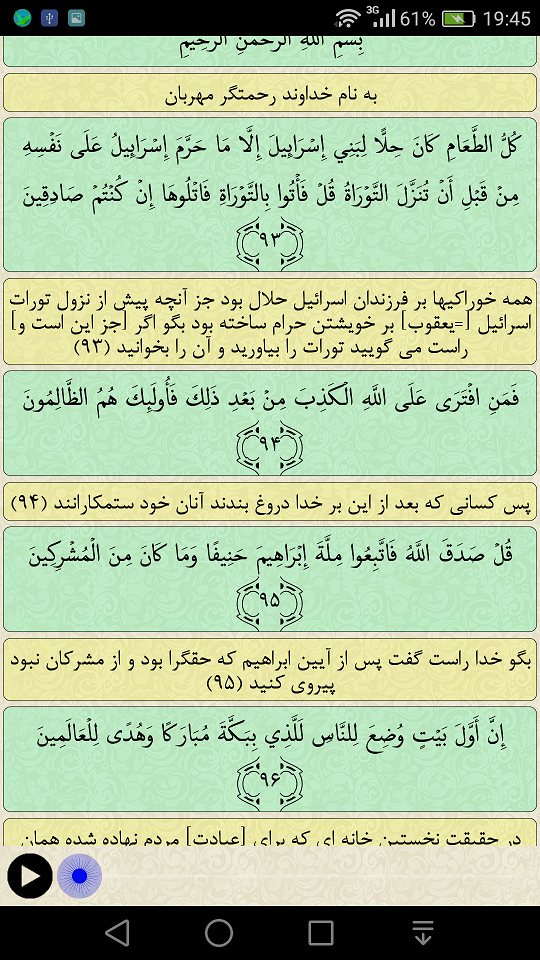 3G 61% 19:45
بِسْمِ اللَّهِ الرَّحْمَنِ الرَّحِيمِ
به نام خداوند رحمتگر مهربان
كُلُّ الطَّعَامِ كَانَ حِلًّا لِبَنِي إِسْرَائِيلَ إِلَّا مَا حَرَّمَ إِسْرَائِيلُ عَلَى نَفْسِهِ
مِنْ قَبْلِ أَنْ تُنَزَّلَ التَّوْرَاةُ قُلْ فَأْتُوا بِالتَّوْرَاةِ فَاتْلُوهَا إِنْ كُنْتُمْ صَادِقِينَ
۹۳
همه خوراکیها بر فرزندان اسرائیل حلال بود جز آنچه پیش از نزول تورات
اسرائیل [=یعقوب] بر خویشتن حرام ساخته بود بگو اگر [جز این است و]
راست می گویید تورات را بیاورید و آن را بخوانید (۹۳)
فَمَنِ افْتَرَى عَلَى اللَّهِ الْكَذِبَ مِنْ بَعْدِ ذَلِكَ فَأُولَئِكَ هُمُ الظَّالِمُونَ
۹۴
پس کسانی که بعد از این بر خدا دروغ بندند آنان خود ستمکارانند (۹۴)
قُلْ صَدَقَ اللَّهُ فَاتَّبِعُوا مِلَّةَ إِبْرَاهِيمَ حَنِيفًا وَمَا كَانَ مِنَ الْمُشْرِكِينَ
۹۵
بگو خدا راست گفت پس از آیین ابراهیم که حقگرا بود و از مشرکان نبود
پیروی کنید (۹۵)
إِنَّ أَوَّلَ بَيْتٍ وُضِعَ لِلنَّاسِ لَلَّذِي بِبَكَّةَ مُبَارَكًا وَهُدًى لِلْعَالَمِينَ
۹۶
در حقیقت نخستین خانه ای که برای [عبادت] مردم نهاده شده همان